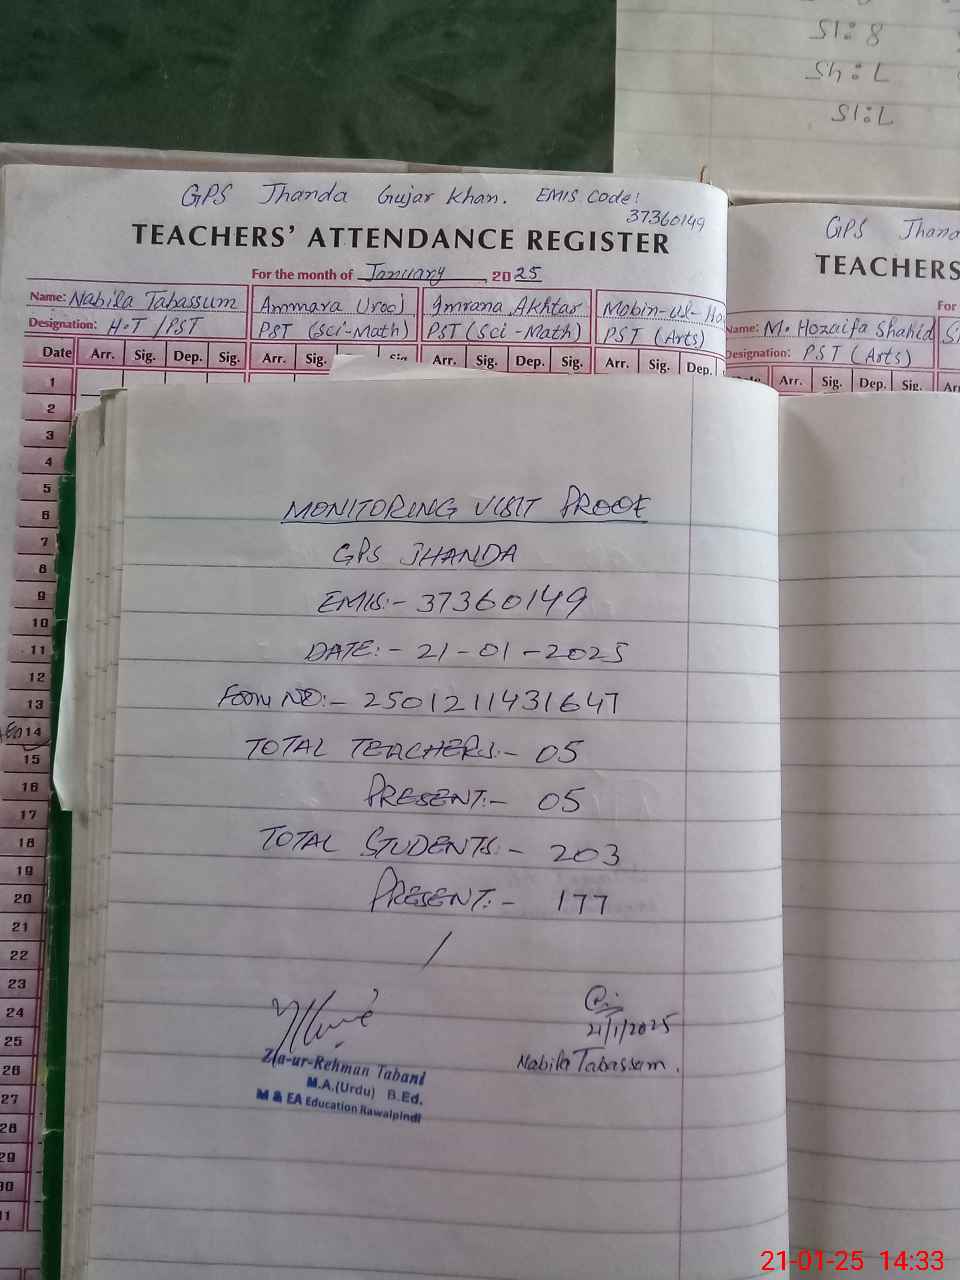 8:15
7:45
7:15
GPS Jhanda Gujar Khan. EMIS Code:
37360149
TEACHERS' ATTENDANCE REGISTER
For the month of January, 2025
Name: Nabila Tabassum Ammara Urooj Imrana Akhtar Mobin-ul-
Designation: H.T / PST PST (Sci-Math) PST (Sci-Math) PST (Arts)
Date Arr. Sig. Dep. Sig. Arr. Sig. Sig. Arr. Sig. Dep. Sig. Arr. Sig. Dep.
GPS Jhanda
TEACHERS
For
Name: M. Hozaifa Shahid
Designation: PST (Arts)
Arr. Sig. Dep. Sig. Arr
1
2
3
4
5
6
7
8
9
10
11
12
13
14
15
16
17
18
19
20
21
22
23
24
25
26
27
28
29
30
31
MONITORING VISIT PROOF
GPS JHANDA
EMIS:- 37360149
DATE:- 21-01-2025
Form NO:- 2501211431647
TOTAL TEACHERS:- 05
PRESENT:- 05
TOTAL STUDENTS:- 203
PRESENT:- 177
21/1/2025
Nabila Tabassam.
Zia-ur-Rehman Tabani
M.A.(Urdu) B.Ed.
M & EA Education Rawalpindi
21-01-25 14:33